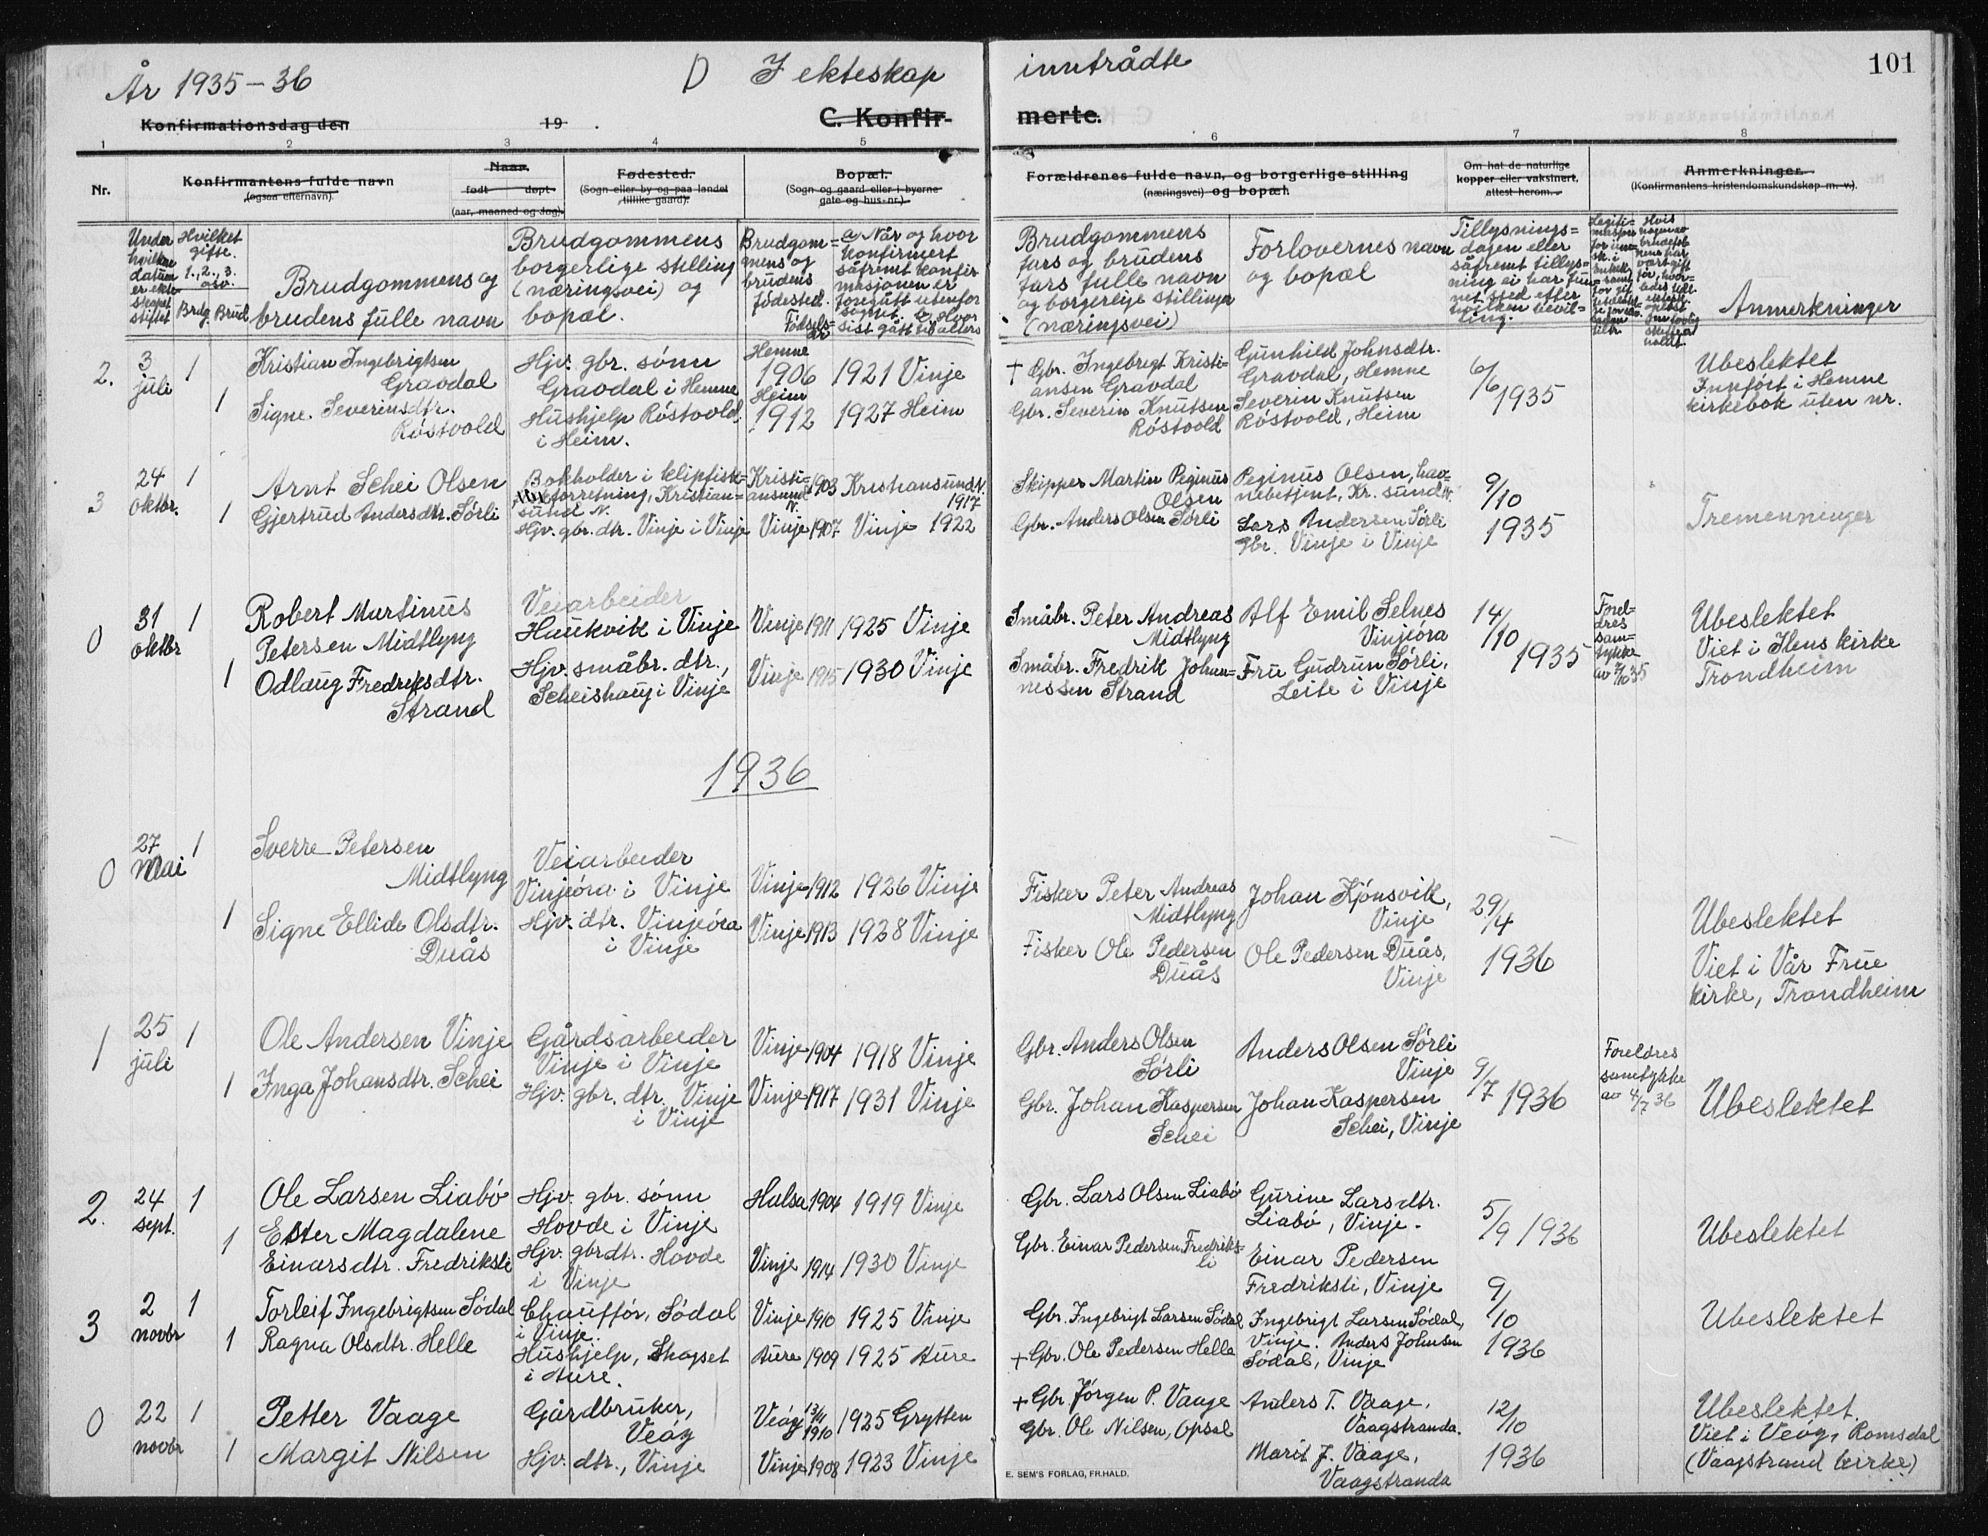 År 1935-36 D I ekteskap inntrådte 101
Konfirmationsdag den 19 . C. Konfir- merte.
1 2 3 4 5 6 7 8
Nr. Konfirmantens fulde navn (ogsaa efternavn). Naar født døpt. (aar, maaned og dag).
Fødested. (Sogn eller by og paa landet tillike gaard).
Bopæl. (Sogn og gaard eller i byerne gate og hus-nr.)
Forældrenes fulde navn, og borgerlige stilling (næringsvei) og bopæl.
Om hat de naturlige kopper eller vaksinert, attest herom.
Anmerkninger. (Konfirmantens kristendomskundskap m. v.).
Under hvilken datum er ekteskapet stiftet
Hvilket gifte. 1., 2., 3. osv.
Brudg. Brud.
Brudgommens og
brudens fulle navn
Brudgommens
borgerlige stilling
(næringsvei) og
bopæl.
Brudgom=
mens og
brudens
fødested.
Fødsels=
år
a Når og hvor
konfirmert
såfremt konfir
masjonen er
foregått utenfor
sognet. b. Hvor
sist gått til alters
Brudgommens
fars og brudens
fars fulle navn
og borgerlige stillinger
(næringsvei)
Forlovernes navn
og bopæl
Tillysnings=
dagen eller
såfremt tillys=
ning ei har fun=
net sted efter
hvilken bevil=
ling.
Anmerkninger
2. 3 juli 1
Kristian Ingebrigtsen
Gravdal
Hjv. gbr. sønn
Gravdal i Hemne
Hemne
1906 1921 Vinje
† Gbr. Ingebrigt Kristi=
ansen Gravdal
Gunhild Johnsdtr.
Gravdal, Hemne
6/6 1935
Ubeslektet
Innført i Hemne
kirkebok uten nr.
1 Signe Severinsdtr.
Røstvold
Hushjelp Røstvold,
i Heim.
Heim
1912 1927 Heim
Gbr. Severin Knutsen
Røstvold
Severin Knutsen
Røstvold, Heim
3 24 oktbr. 1
Arnt Schei Olsen
Bokholder i klipfisk=
forretning, Kristian=
sund N.
Kristi=
ansund
N.
1903 Kristiansund N.
1917
Skipper Martin Peginus
Olsen
Peginus Olsen, hav=
nebetjent, Kr. sund N.
9/10
1935
Tremenninger
1 Gjertrud Andersdtr. Sørli
Hjv. gbr. dtr. Vinje i Vinje
Vinje 1907 Vinje 1922
Gbr. Anders Olsen Sørli
Lars Andersen Sørli
gbr. Vinje i Vinje
0 31 oktbr 1
Robert Martinus
Petersen Midtlyng
Veiarbeider
Haukvik i Vinje
Vinje 1911 1925 Vinje
Småbr. Peter Andreas
Midtlyng
Alf Emil Selnes
Vinjeøra
14/10 1935
Forel=
dres
sam=
tykke
av 2/10 35
Ubeslektet
Viet i Ilens kirke
Trondheim
1 Odlaug Fredriksdtr.
Strand
Hjv. småbr. dtr.,
Scheishaug i Vinje
Vinje 1915 1930 Vinje
Småbr. Fredrik Johan=
nessen Strand
Fru Gudrun Sørli,
Leite i Vinje
1936
0 27 Mai 1
Sverre Petersen
Midtlyng
Veiarbeider
Vinjeøra i Vinje
Vinje 1912 1926 Vinje
Fisker Peter Andreas
Midtlyng
Johan Kjønsvik,
Vinje
29/4
1936
Ubeslektet
Viet i Vår Frue
kirke, Trondheim
1 Signe Ellide Olsdtr.
Duås
Hjv. dtr. Vinjeøra
i Vinje
Vinje 1913 1928 Vinje
Fisker Ole Pedersen
Duås
Ole Pedersen Duås,
Vinje
1 25 juli 1
Ole Andersen Vinje
Gårdsarbeider
Vinje i Vinje
Vinje 1904 1918 Vinje
Gbr. Anders Olsen
Sørli
Anders Olsen Sørli
Vinje
9/7 1936
Foreldres
samtykke
av 4/7 36
Ubeslektet
1 Inga Johansdtr. Schei
Hjv. gbr. dtr. Vinje
i Vinje
Vinje 1917 1931 Vinje
Gbr. Johan Kaspersen
Schei
Johan Kaspersen
Schei, Vinje
2. 24 sept. 1
Ole Larsen Liabø
Hjv. gbr. sønn
Hovde i Vinje
Halsa 1904 1919 Vinje
Gbr. Lars Olsen Liabø
Gurine Larsdtr.
Liabø, Vinje.
5/9 1936
Ubeslektet
1 Ester Magdalene
Einarsdtr. Fredriksli
Hjv. gbrdtr. Hovde
i Vinje
Vinje 1914 1930 Vinje
Gbr. Einar Pedersen Fredriks=
li
Einar Pedersen
Fredriksli, Vinje
3 2 novbr 1
Torleif Ingebrigtsen Sødal
Chauffør, Sødal
i Vinje.
Vinje 1910 1925 Vinje
Gbr. Ingebrigt Larsen Sødal
Ingebrigt Larsen Sødal,
Vinje. Anders Johnsen
Sødal, Vinje
9/10
1936
Ubeslektet
1 Ragna Olsdtr. Helle
Hushjelp, Skogset
i Aure.
Aure 1909 1925 Aure
+ Gbr. Ole Pedersen Helle
0 22 novbr 1
Petter Vaage
Gårdbruker,
Veøy
Veøy 1910 1925 Grytten
+ Gbr. Jørgen P. Vaage
Anders T. Vaage,
Vaagstranda.
12/10
1936
Ubeslektet.
Viet i Veøy, Romsdal
(Vaagstrand kirke)
1 Margit Nilsen
Hjv. dtr., Vinje
Vinje 1908 1923 Vinje
Gbr. Ole Nilsen, Opsal
Marit J. Vaage,
Vaagstranda
E. SEM'S FORLAG, FR.HALD.